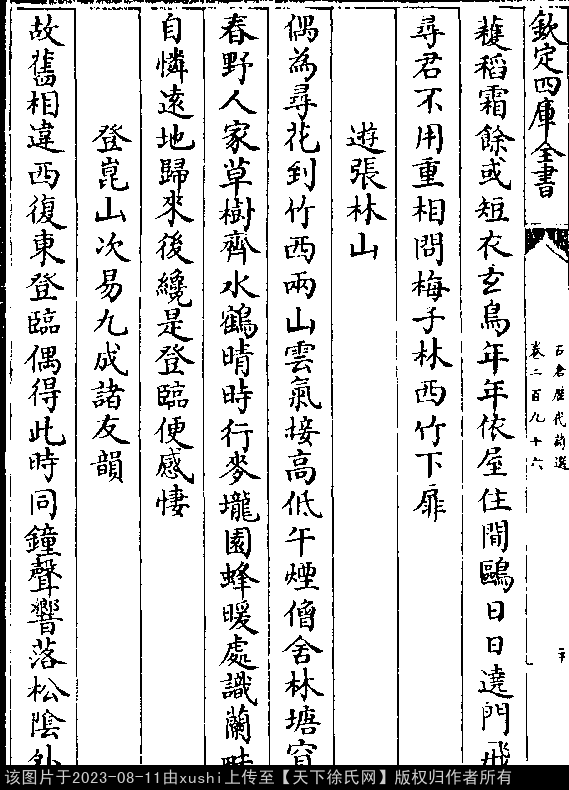 欽定四庫全書
石倉歷代詩選
卷二百九十六
穫稻霜餘或短衣玄鳥年年依屋住閒鷗日日遶門飛
尋君不用重相問梅子林西竹下扉
遊張林山
偶為尋花到竹西兩山雲氣接高低午煙僧舍林塘窅
春野人家草樹齊水鶴晴時行麥壠園蜂暖處識蘭畦
自憐遠地歸來後纔是登臨便感悽
登崑山次易九成諸友韻
故舊相違西復東登臨偶得此時同鐘聲響落松陰外
该图片于2023-08-11由xushi上传至【天下徐氏网】版权归作者所有